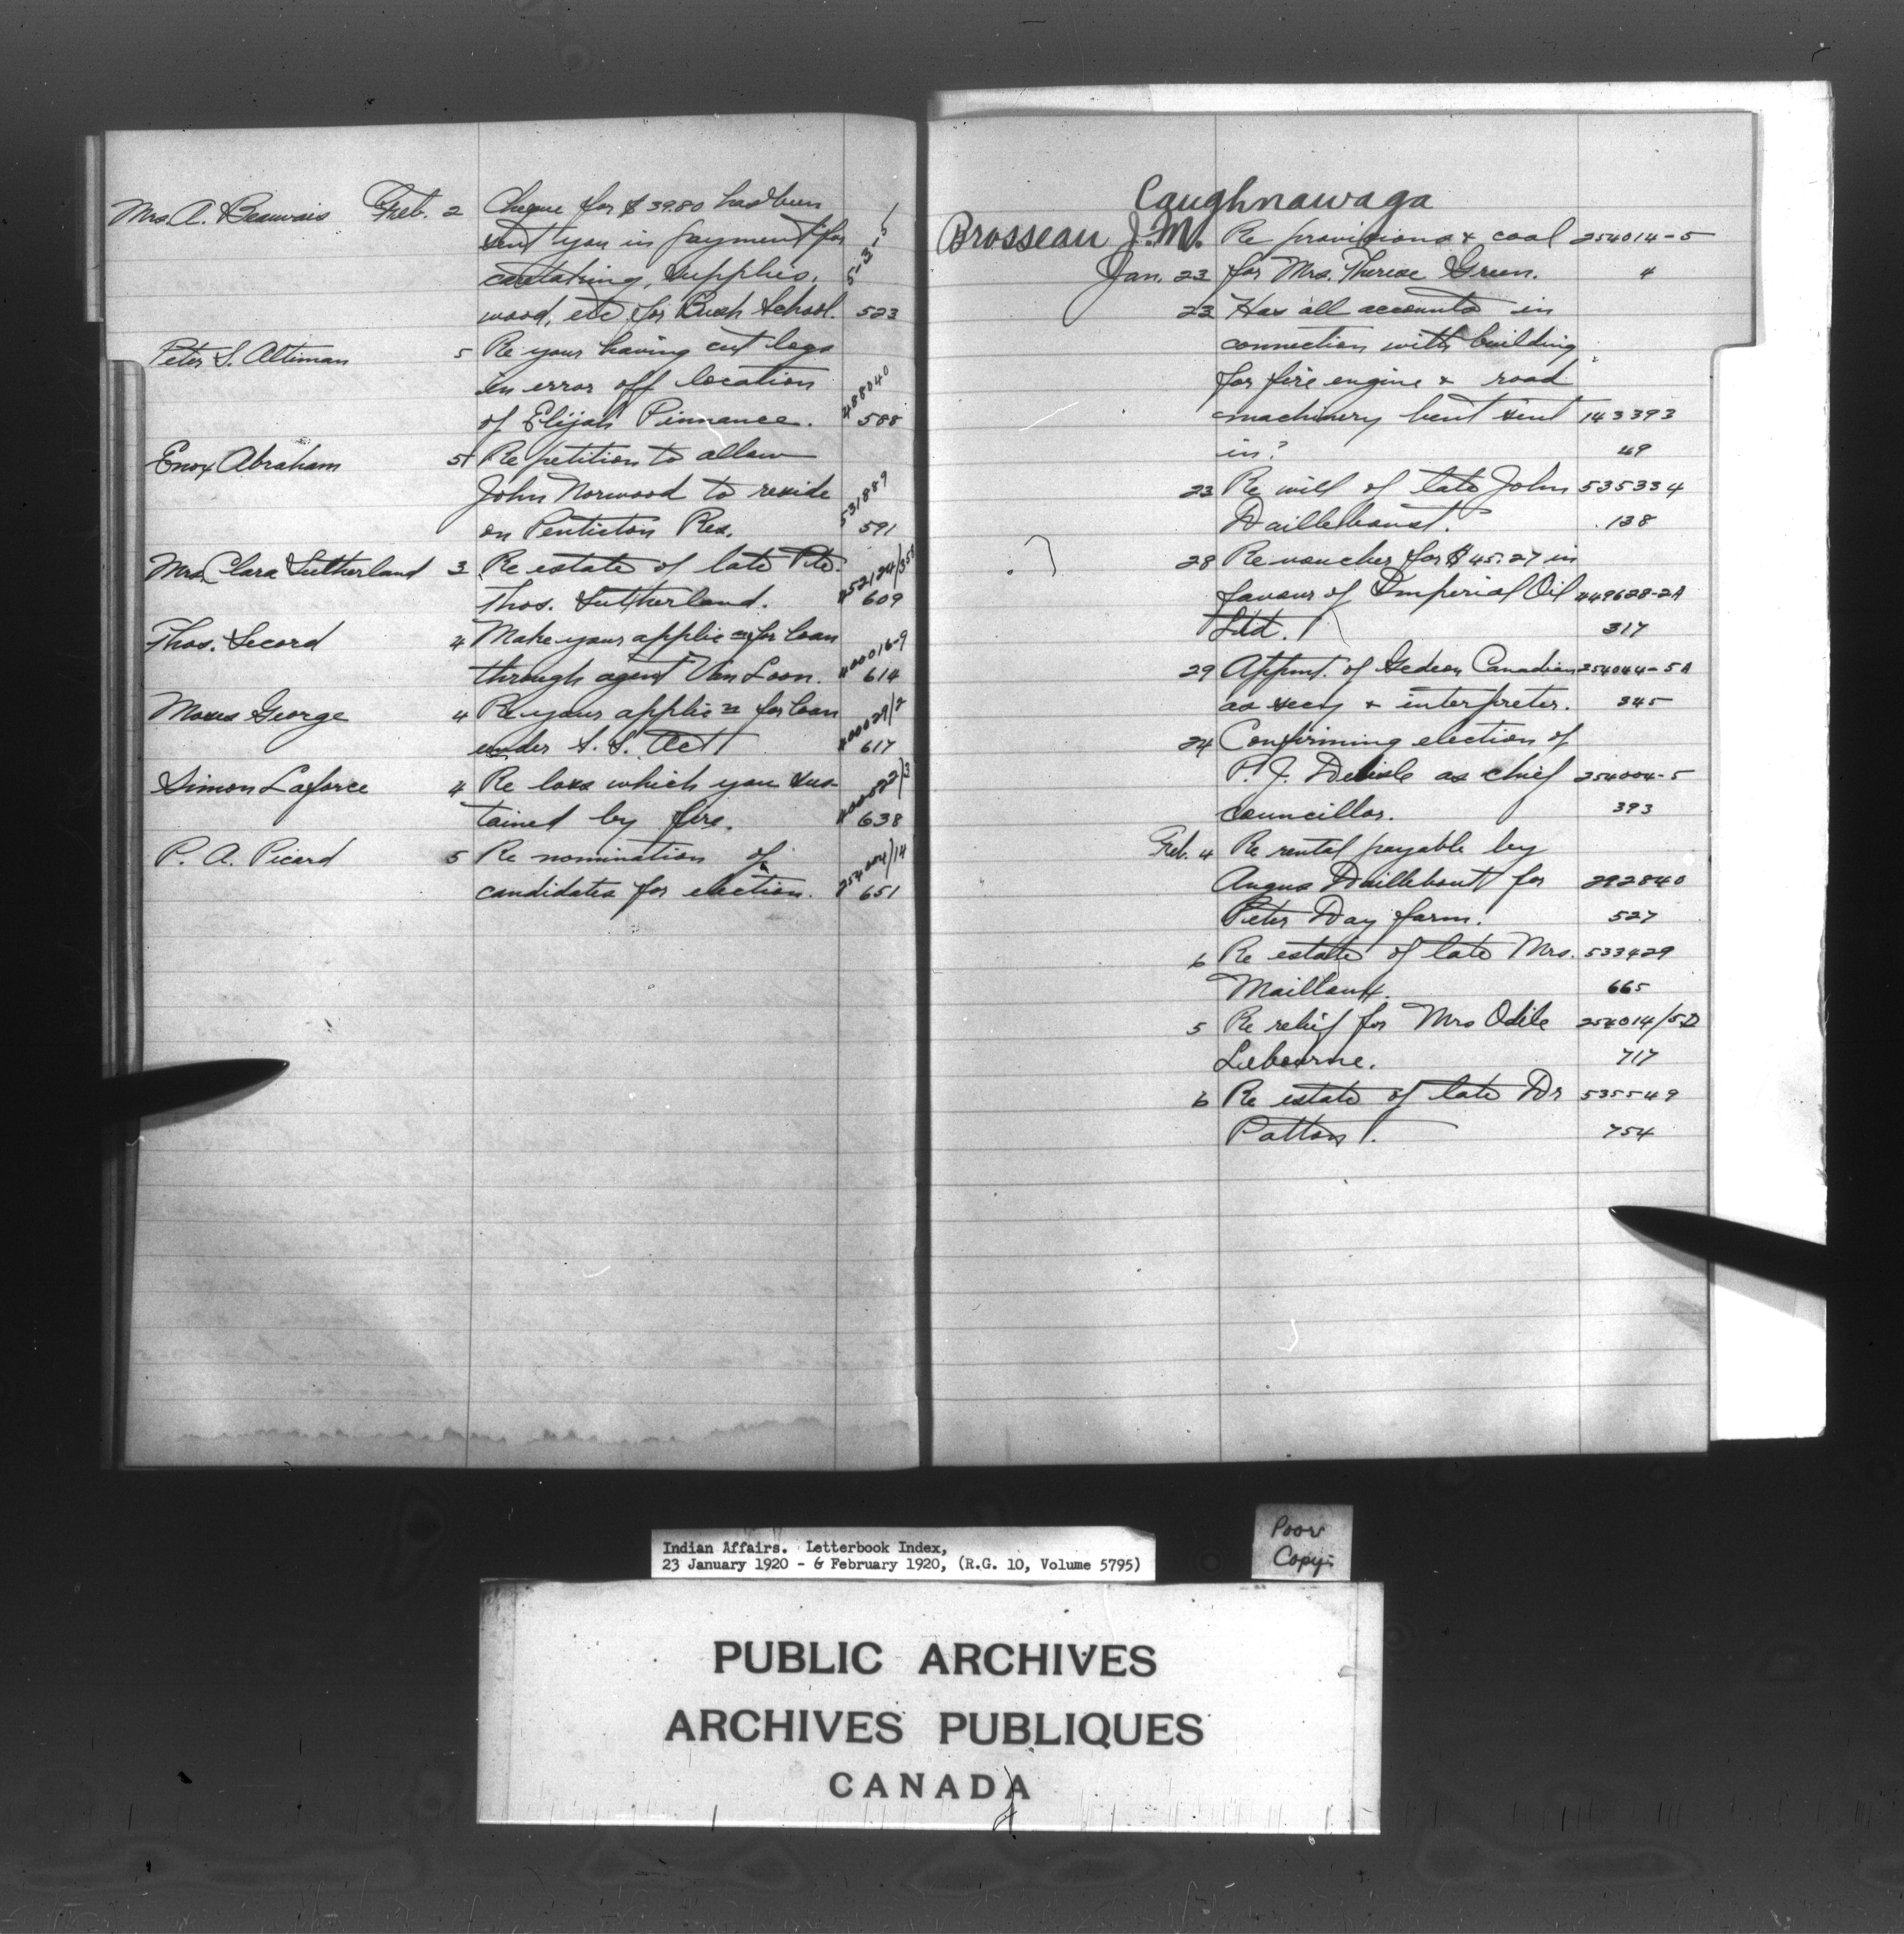 Mrs. A. Beauvais Feb. 2 Cheque for $39.80 has been
sent you in payment for
caretaking, supplies, 5-3-5
wood, etc. for Bush School. 523
Peter S. Altiman 5 Re your having cut logs
in error off location 488040
of Elijah Pinnance. 588
Enox Abraham 5 Re petition to allow
John Norwood to reside 531889
on Penticton Res. 591
Mrs. Clara Sutherland 3 Re estate of late Pte.
Thos. Sutherland. 609
Thos. Secord 4 Make your applicn for loan 400016-9
through agent Van Loon. 614
Moses George 4 Re your applicn for loan 400029/2
under S. S. Act 617
Simon Laforce 4 Re loss which you sus- 400022/3
tained by fire. 638
P. A. Picard 5 Re nomination of 254004/14
candidates for election. 651
Caughnawaga
Brosseau J.M. Re provisions & coal 254014-5
Jan. 23 for Mrs. Therese Green. 4
23 Has all accounts in
connection with building
for fire engine & road
machinery bent sent 143393
in? 49
23 Re will of late John 535334
Dailleboust. 138
28 Re voucher for $45.27 in
favour of Imperial Oil 449628-2A
Ltd. 317
29 Appmt. of Gedeon Canadian 254044-5A
as secy & interpreter. 345
24 Confirming election of
P. J. Delisle as chief 254004-5
councillor. 393
Feb. 4 Re rental payable by
Angus Daillebout for 292840
Peter Day farm. 527
6 Re estate of late Mrs. 533429
Mailloux. 665
5 Re relief for Mrs Odile 254014/5-D
Lebourne. 717
6 Re estate of late Dr 535549
Patton. 754
Indian Affairs. Letterbook Index,
23 January 1920 - 6 February 1920, (R.G. 10, Volume 5795)
Poor
Copy
PUBLIC ARCHIVES
ARCHIVES PUBLIQUES
CANADA